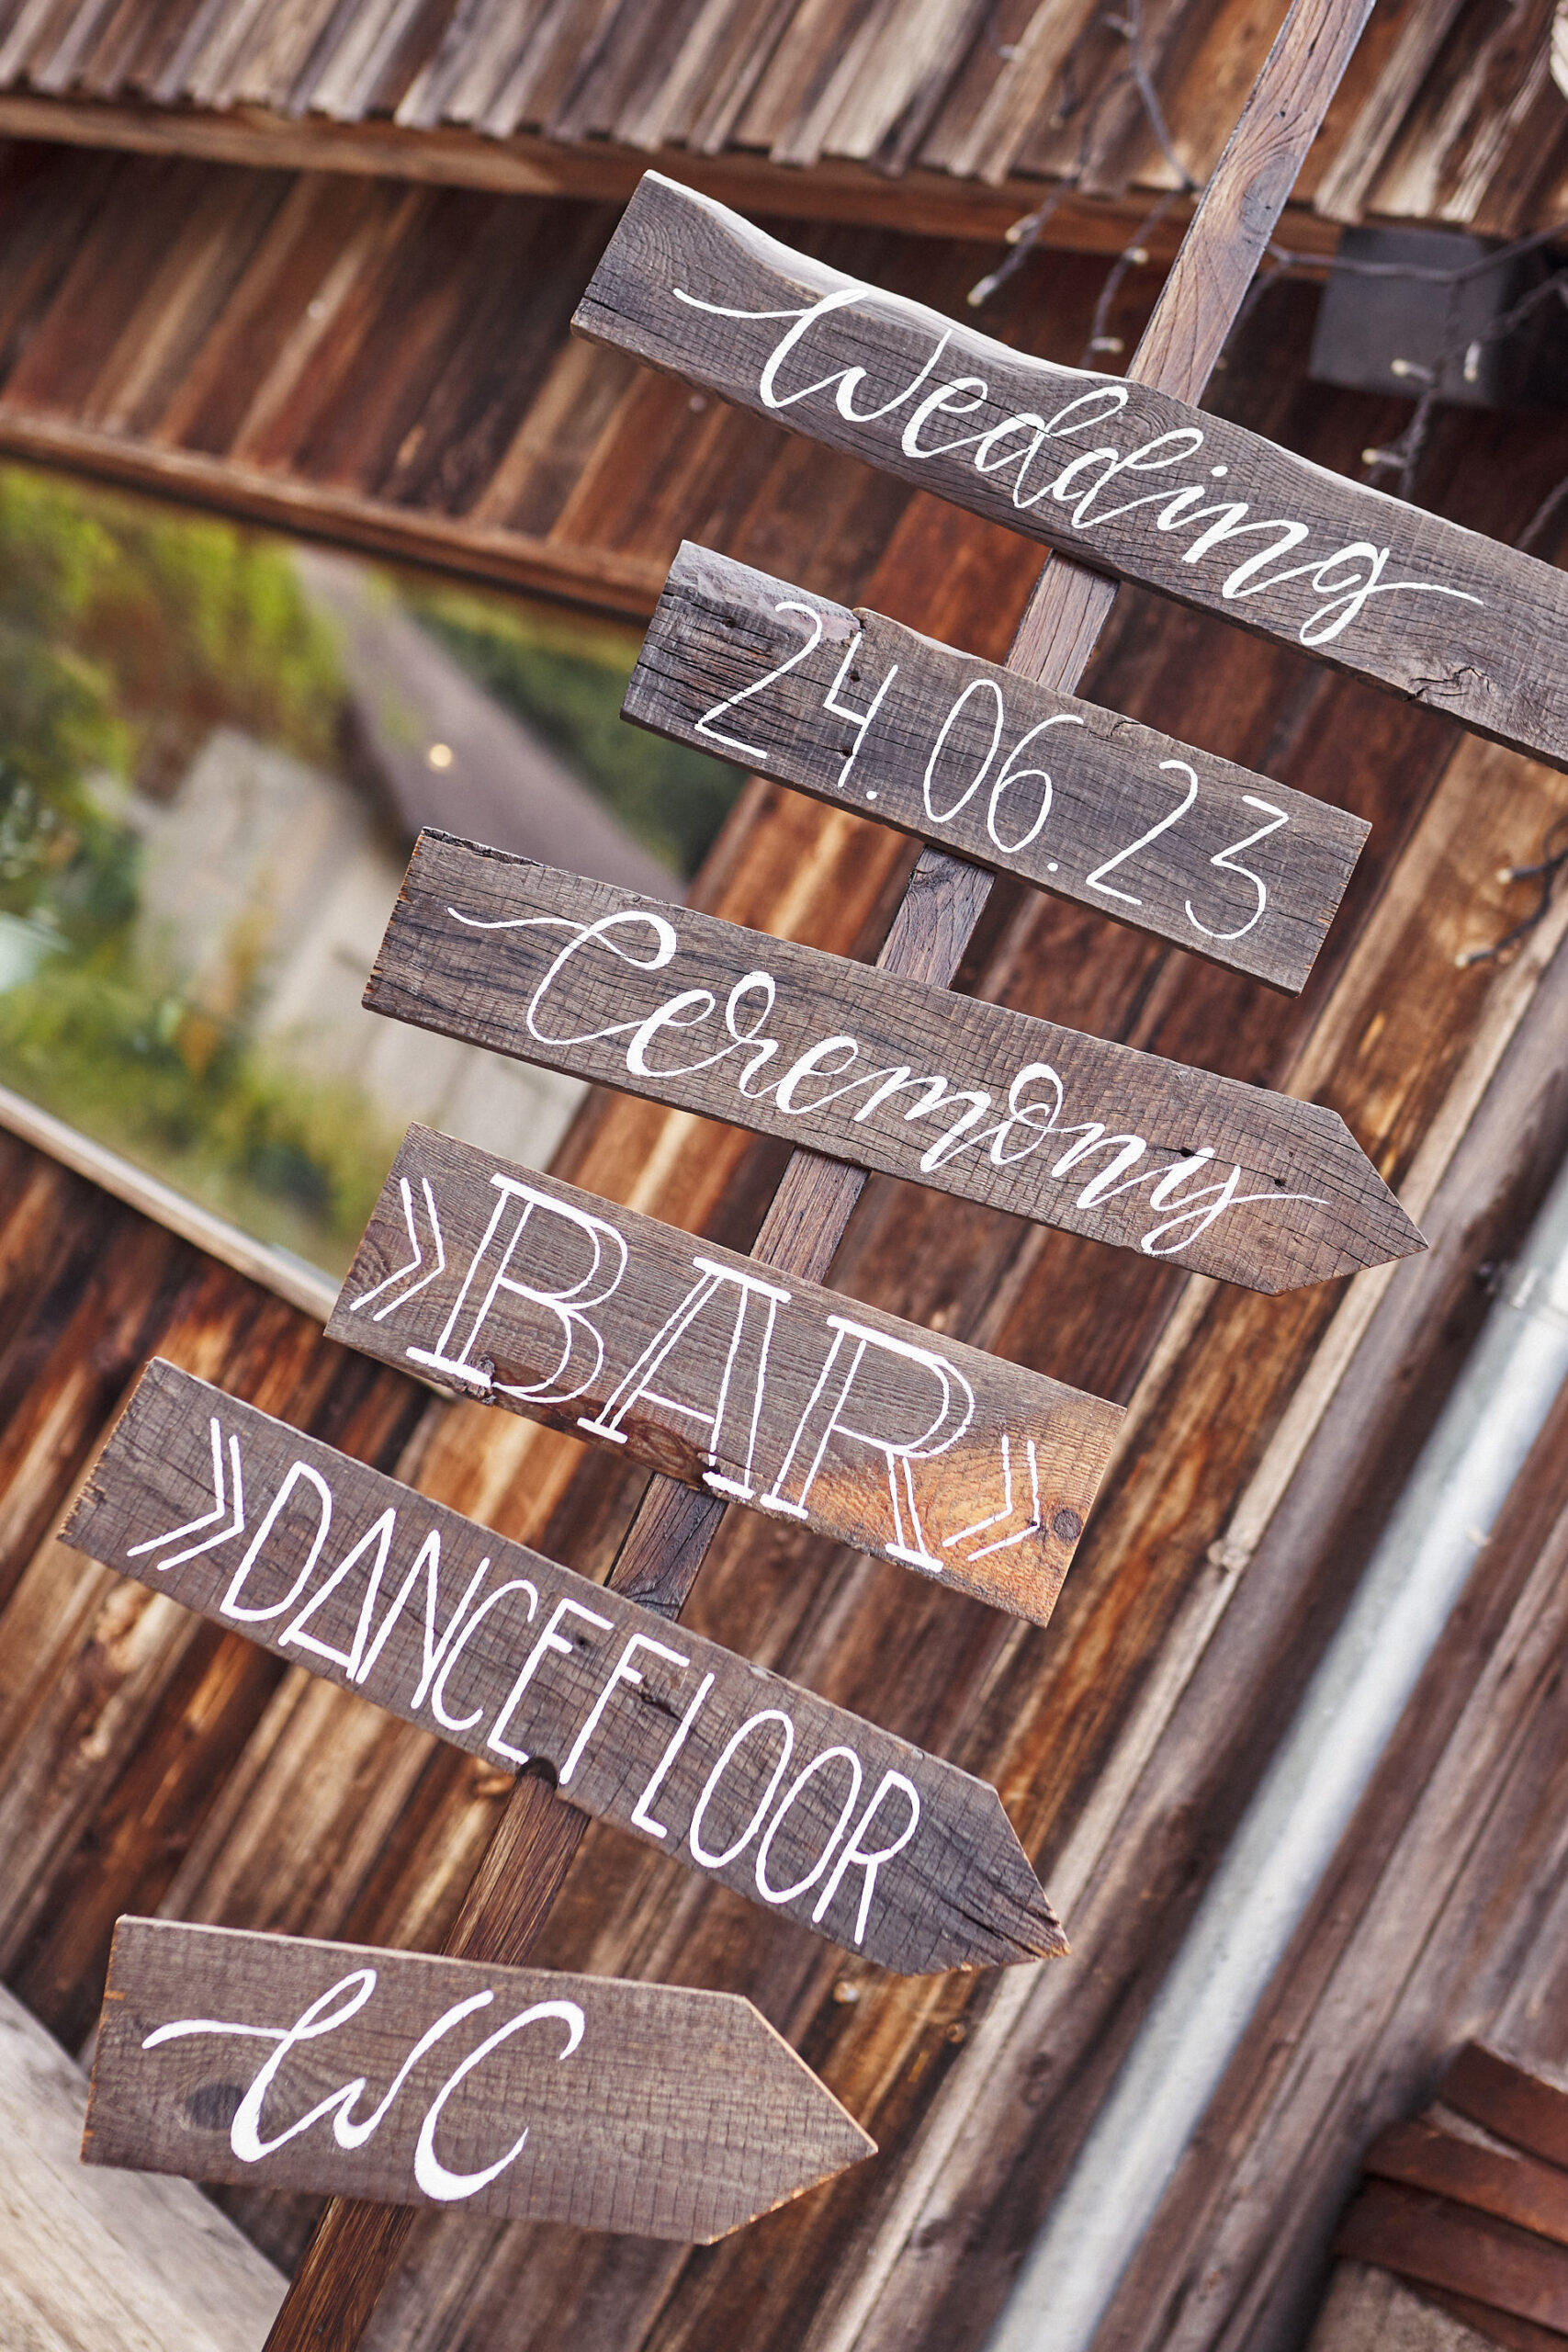 Wedding
24.06.23
Ceremony
» BAR »
» DANCEFLOOR
WC